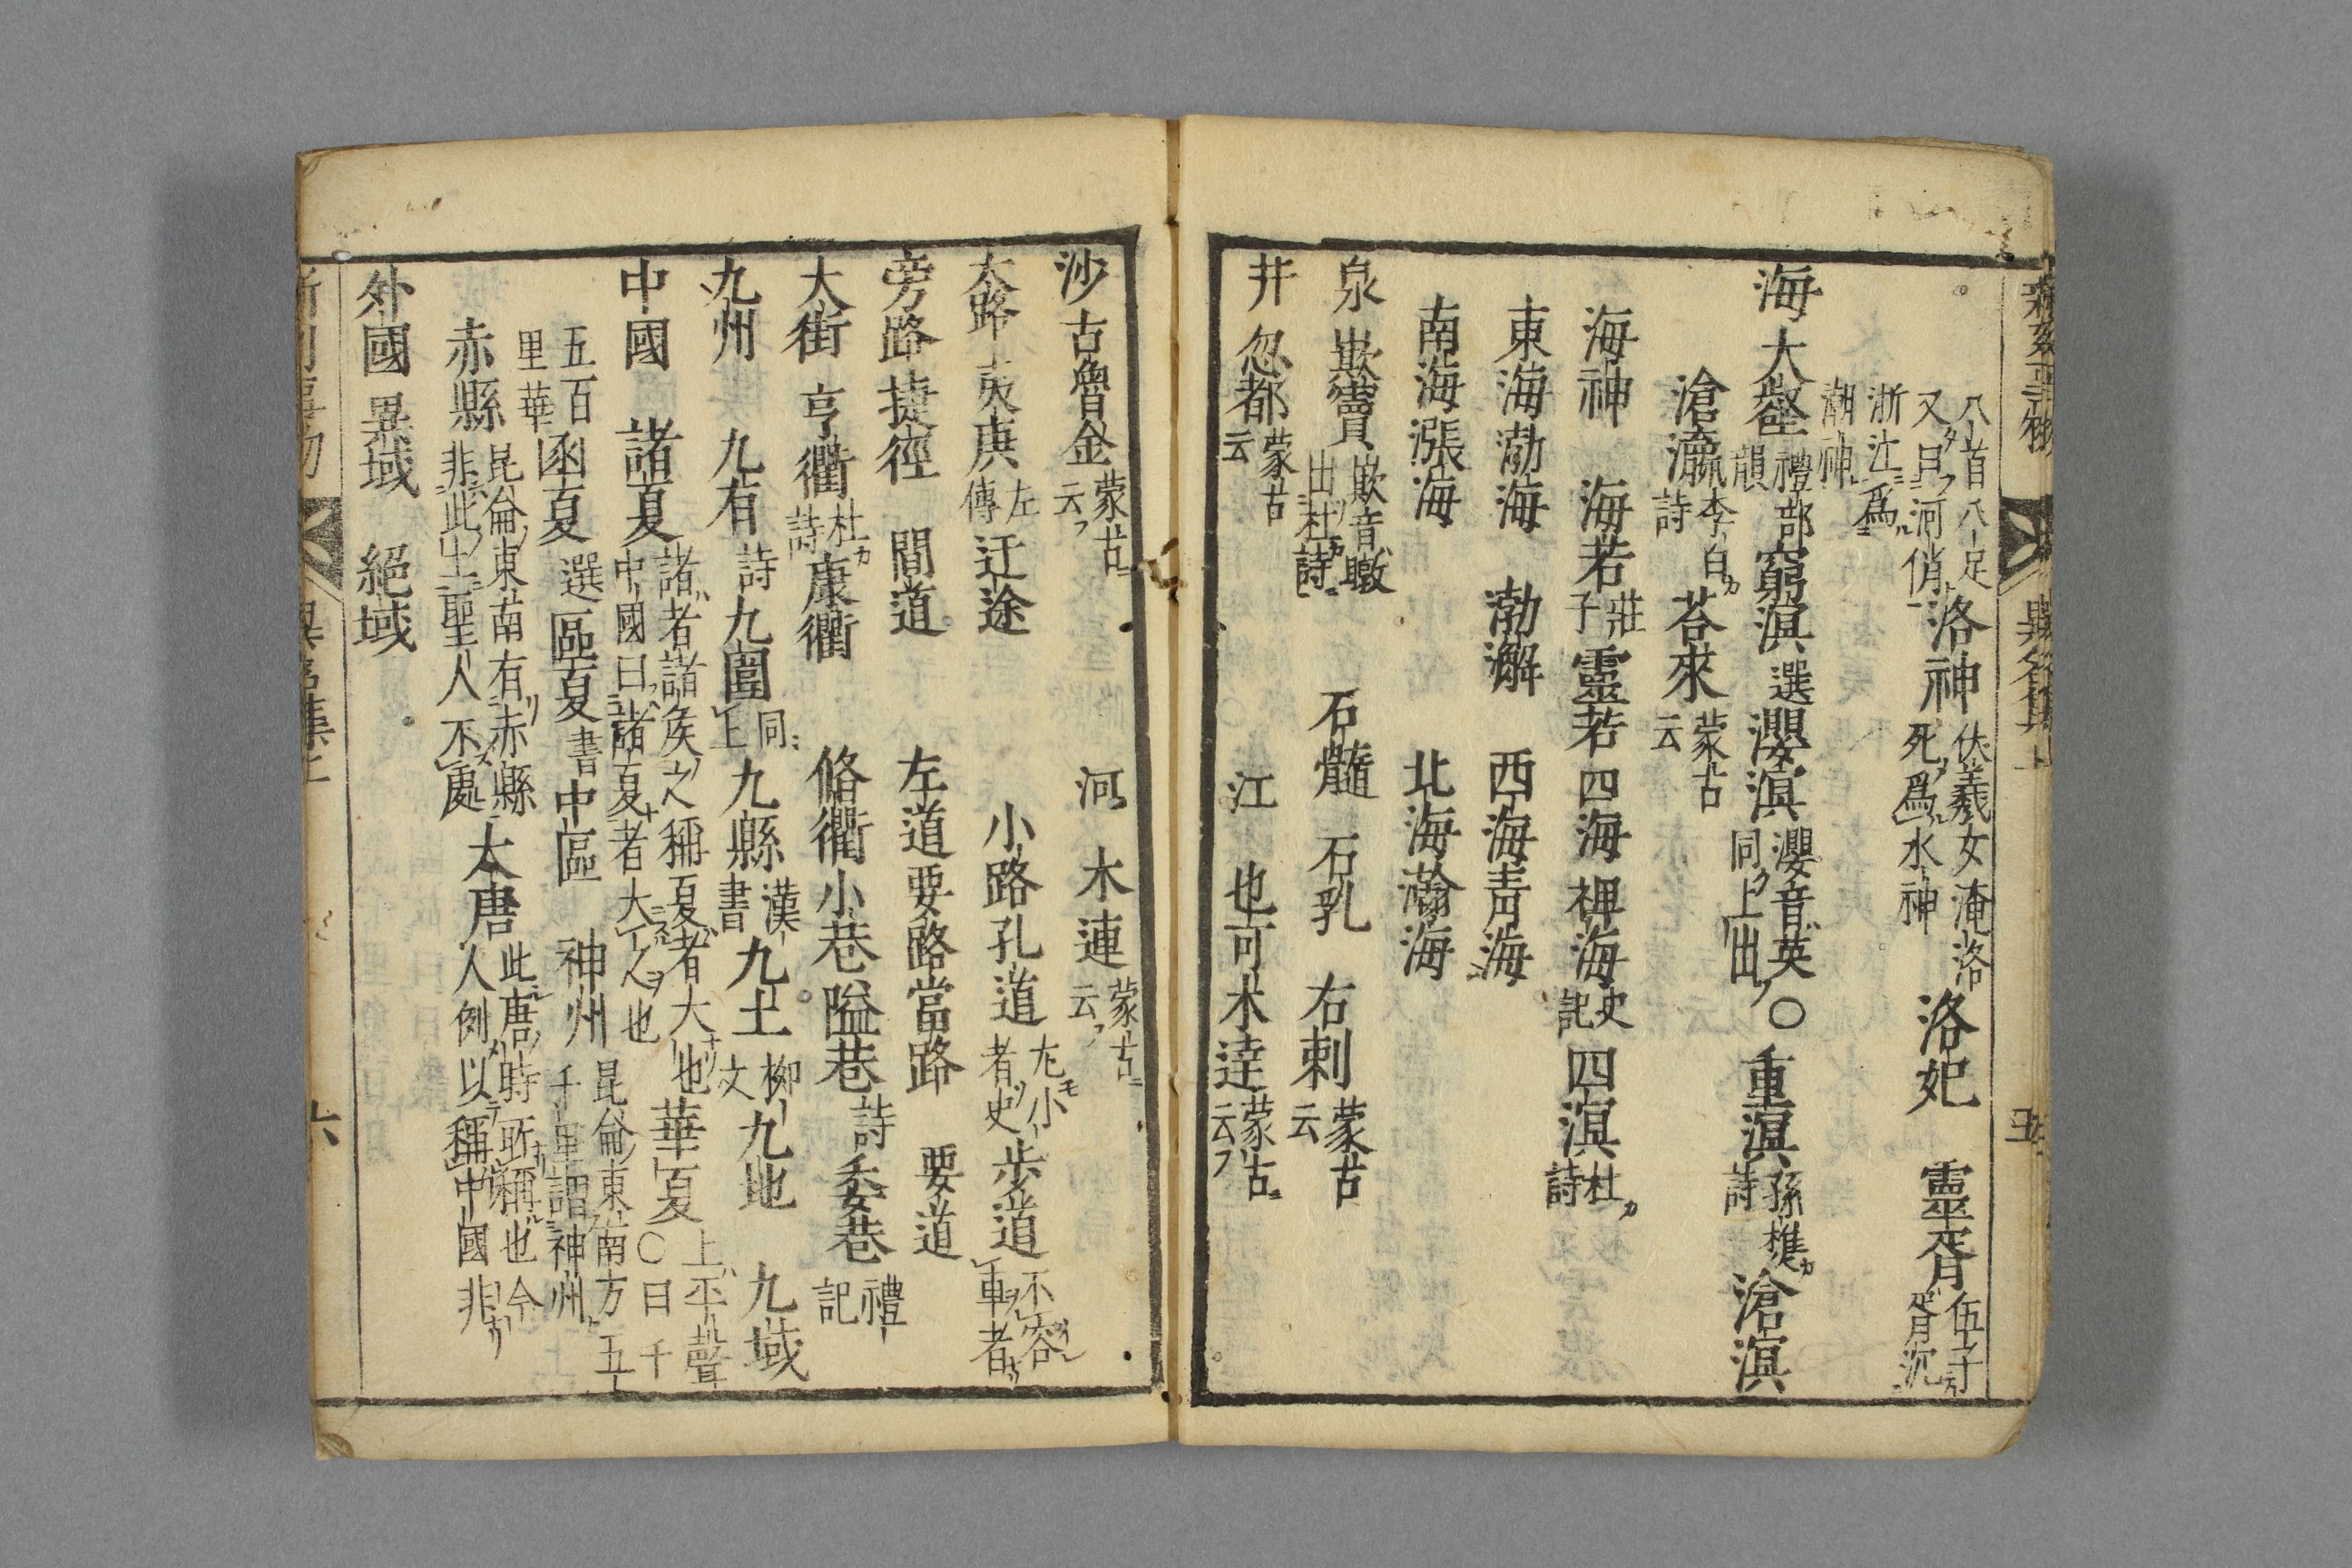 八首八足
又曰河俏
洛神
伏羲女淹洛
死爲水神
洛妃 靈胥
伍子
胥沉
浙江爲
潮神
海 大壑
禮部
韻
窮溟
選
瀴溟
瀴音英
同上出
○重溟
孫樵
詩
滄溟
滄瀛
李白
詩
苔來
蒙古
云
海神 海若
莊
子
靈若 四海 裨海
史
記
四溟
杜
詩
東海 渤海 渤澥 西海 青海
南海 漲海 北海 瀚海
泉 欺竇
欺音瞰
出杜詩
石髓 石乳 右刺
蒙古
云
井 忽都
蒙古
云
江 也可木逹
蒙古
云
沙 古魯金
蒙古
云
河 木連
蒙古
云
大路 夷庚
左
傳
迂途 小路 孔道
尢小
者史
步道
不容
車者
旁路 捷徑 間道 左道 要路 當路 要道
大街 亨衢
杜
詩
康衢 脩衢 小巷 隘巷
詩
委巷
禮
記
九州 九有
詩
九圍
同
上
九縣
漢
書
九土
柳
文
九地 九域
中國 諸夏
諸者諸矦之稱夏者大也
中國曰諸夏者大人也
華夏
上平聲
○曰千
五百
里華
函夏
選
區夏
書
中區 神州
昆侖東南方五
千里謂神州
赤縣
昆侖東南有赤縣
非此土聖人不處
大唐
此唐時所稱也今
人例以稱中國非
外國 異域 絕域
六